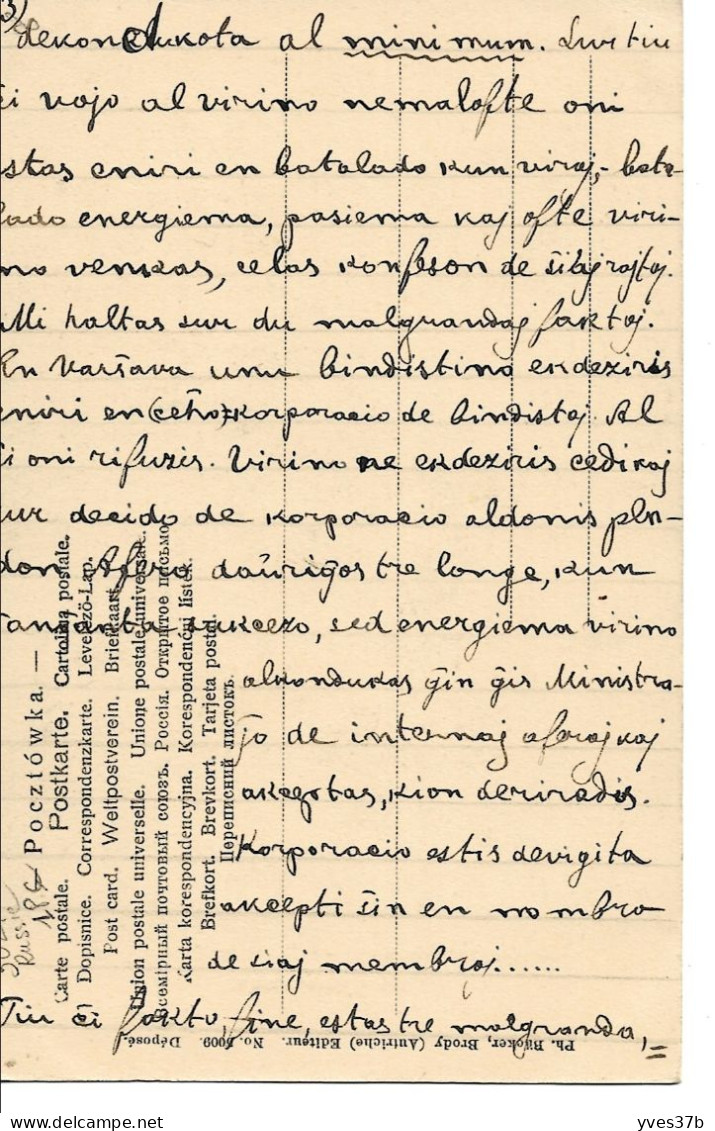 3)
dekondukota al minimum. Sur tiu
ĉi vojo al virino nemalofte oni
estas eniri en batalado kun viroj,- bata-
lado energiema, pasiema kaj ofte viri-
no venkas, celas konfeson de ŝiaj rajtoj.
Mi haltas sur du malgrandaj faktoj.
En Varŝava unu bindistino ekdeziris
eniri en (ceĥo)-korporacio de bindistoj. Al
ŝi oni rifuzis. Virino ne ekdeziris cedi kaj
sur decido de korporacio aldonis plen-
don. Afero daŭriĝos tre longe, kun
sukcezo, sed energiema virino
alkondukas ĝin ĝis Ministra-
ĵo de internaj aferoj kaj
akegotas, kion deziradis.
Korporacio estis devigita
akcepti ŝin en nombro
de siaj membroj......
Tiu ĉi fakto, fine, estas tre malgranda,=
Russie
— Pocztówka. —
Carte postale. Postkarte. Cartolina postale.
Dopisnice. Correspondenzkarte. Levelező-Lap.
Post card. Weltpostverein. Briefkaart.
Union postale universelle. Unione postale universale.
Всемірный почтовый союзъ. Россія. Открытое письмо.
Karta korespondencyjna. Korespondenční lístek.
Brefkort. Brevkort. Tarjeta postal.
Переписний листокъ.
Ph. Bücker, Brody (Autriche) Editeur. No. 5009. Déposé.
yves37b